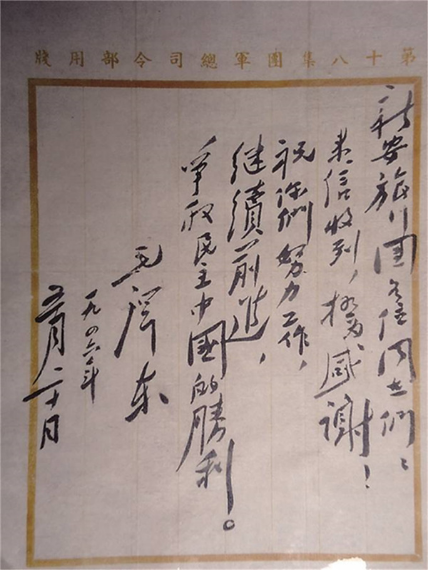 第十八集團軍總司令部用牋
新安旅行團各位同志們：
来信收到，極為感謝！
祝你們努力工作，
继續前進，
爭取民主中國的勝利。
毛澤东
一九四六年
五月二十日